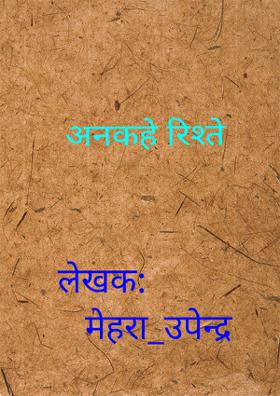 अनकहे रिश्ते
लेखक:
मेहरा_उपेन्द्र